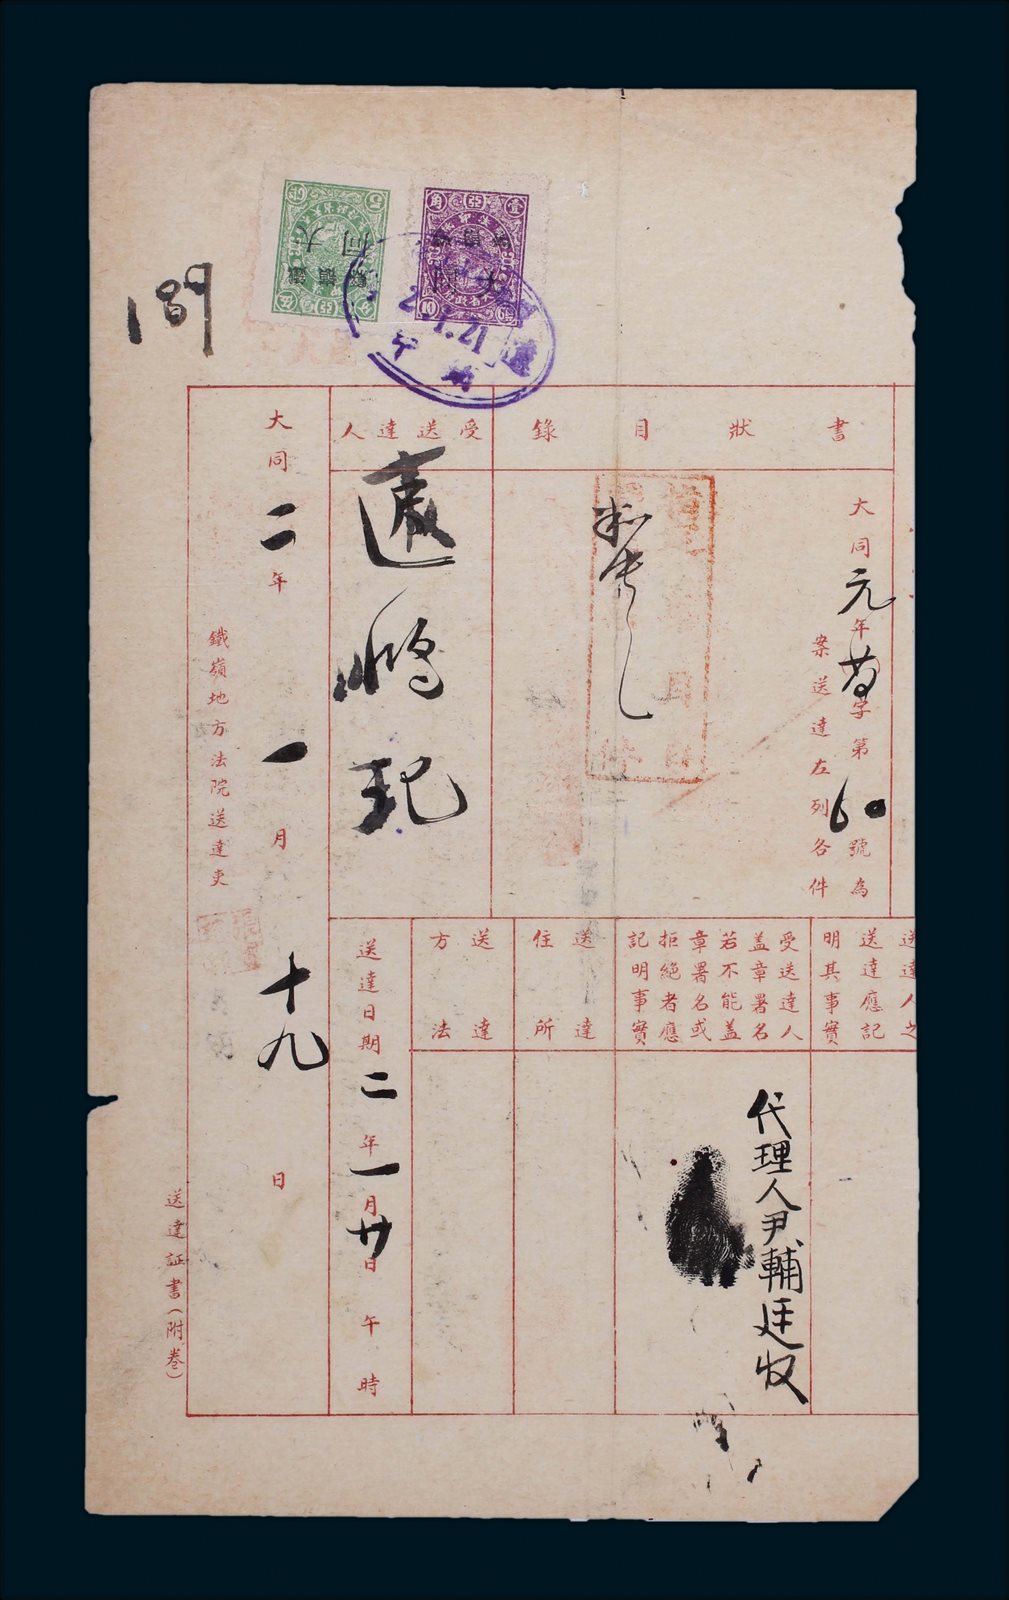 書狀目錄
大同元年
字第60號為
案送達左列各件
受送達人
鴻記
大同二年一月十九日
鐵嶺地方法院送達吏
送達人之
送達應記
明其事實
受送達人
蓋章署名
若不能蓋
章署名或
拒絕者應
記明事實
代理人尹輔廷收
送達
住所
送達
方法
送達日期二年一月廿日午時
送達証書（附卷）
189
壹角
10
大同
5
伍分
大同
鐵嶺
2.1.21